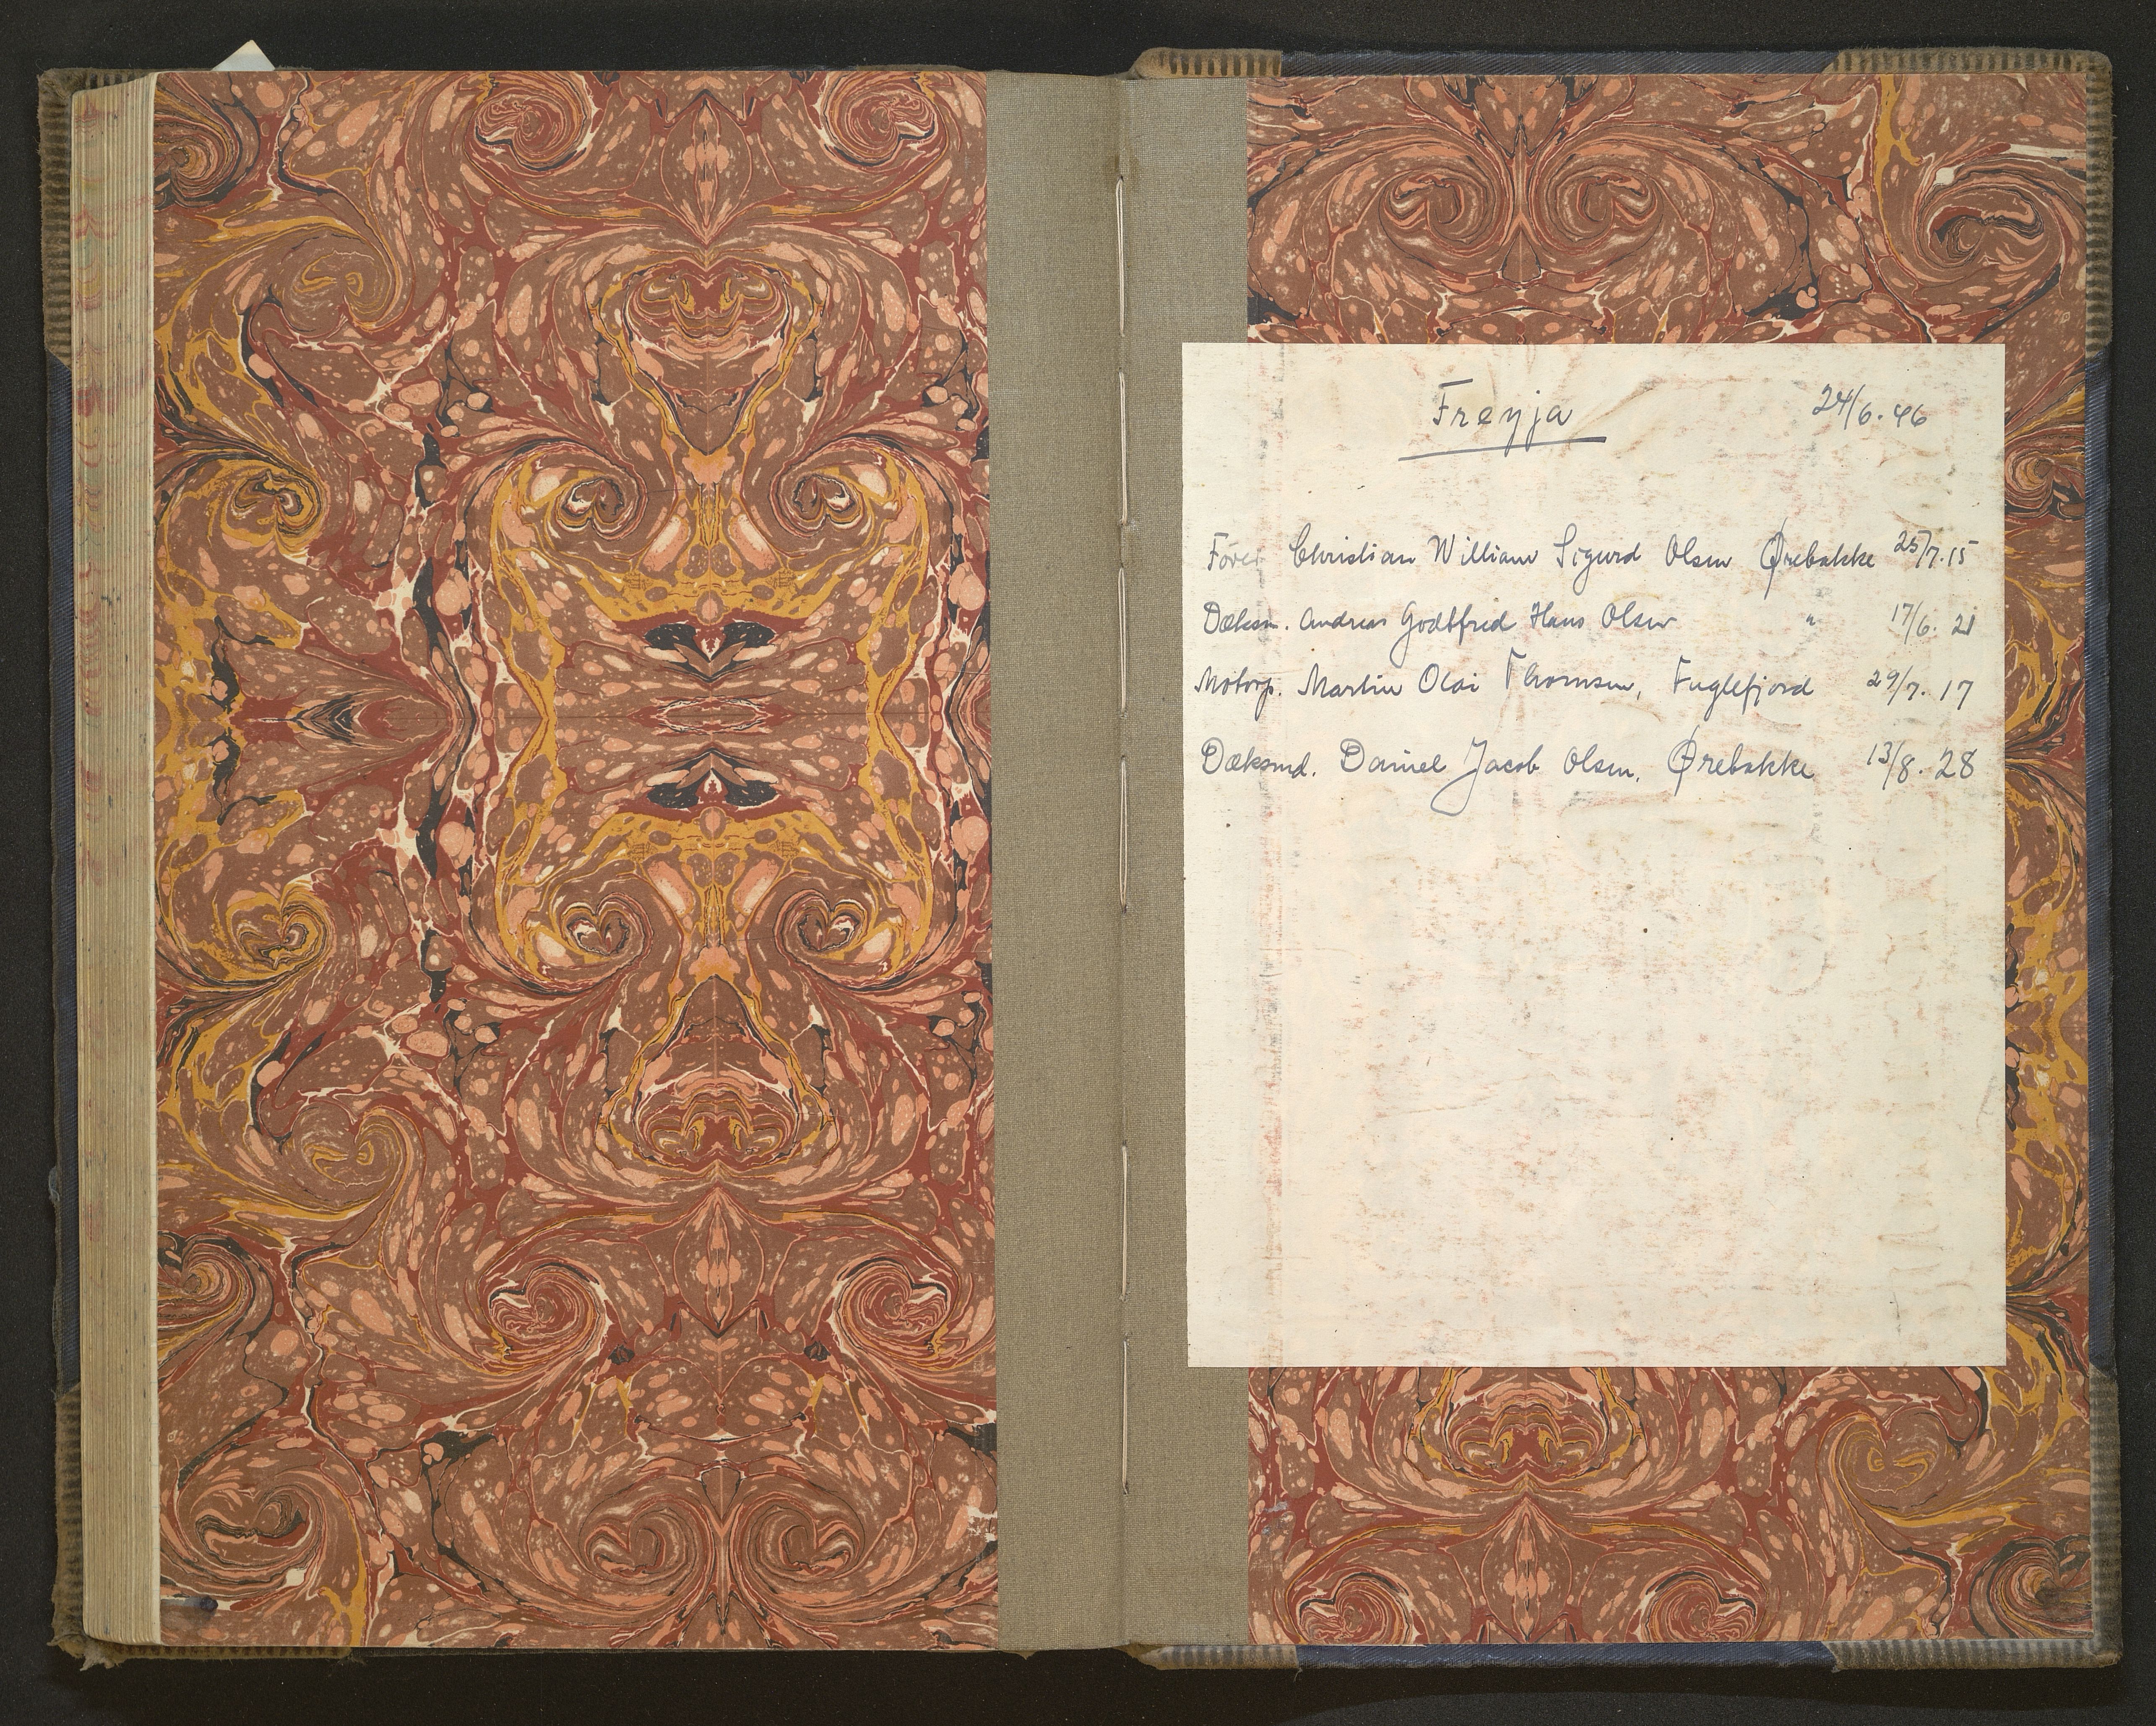 Freyja 24/6.46
Fører Christian William Sigurd Olsen Ørebakke 25/7.15
Dæksm. Andreas Godtfred Hans Olsen " 17/6. 21
Motorp. Martin Olai Thomsen, Fuglefjord 29/7. 17
Dæksmd. Daniel Jacob Olsen, Ørebakke 13/8. 28